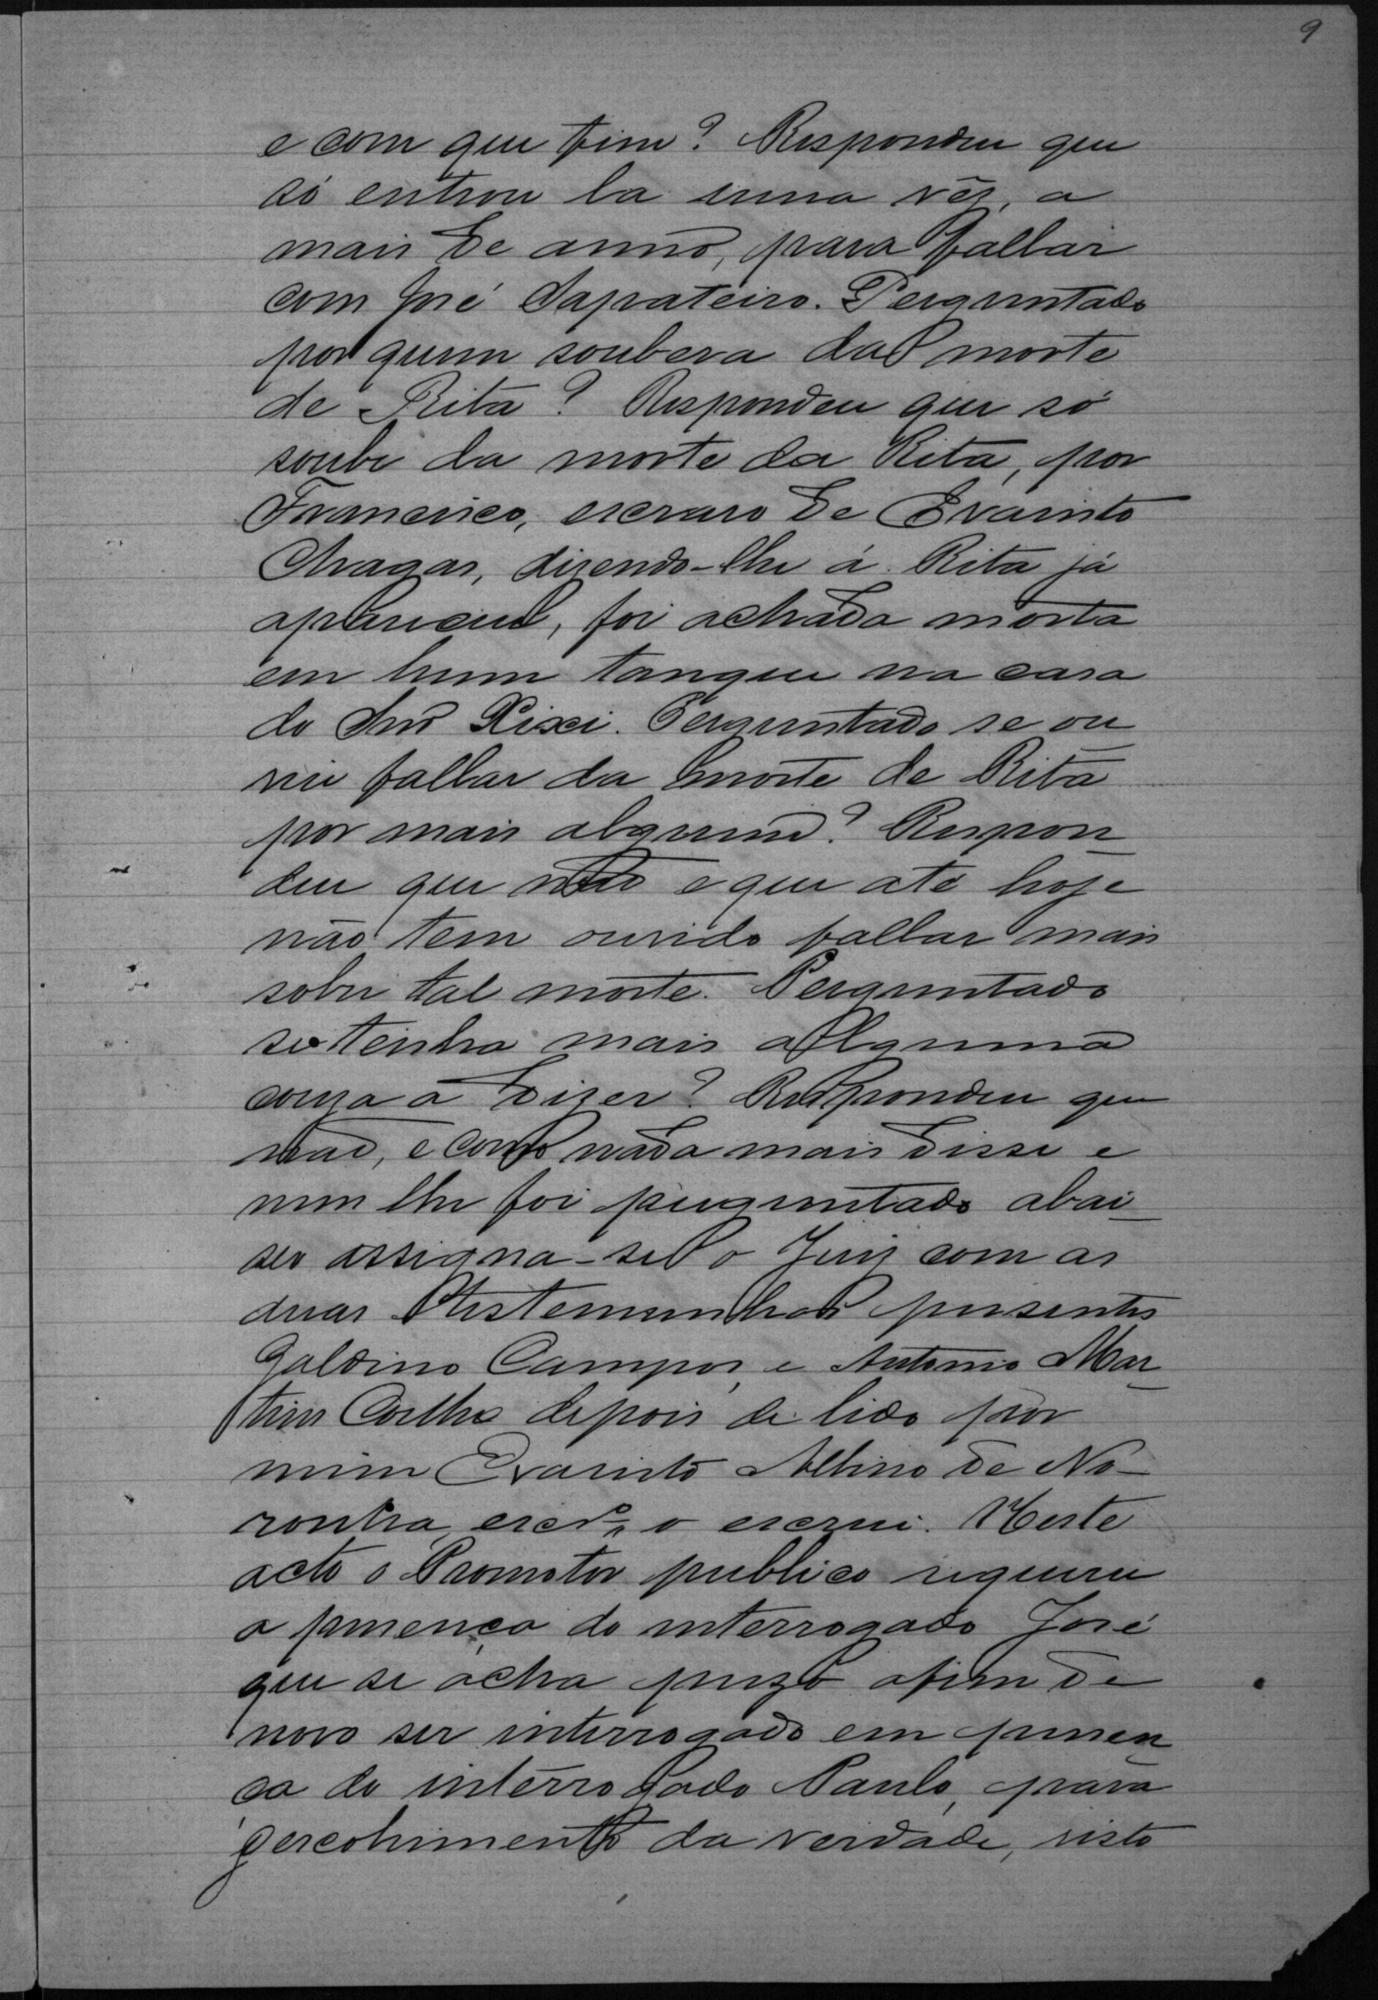 9
e com que fim? Respondeu que
só entrou la uma vêz, a
mais de anno, para fallar
com José Sapateiro. Perguntado
por quem soubera da morte
de Rita? Respondeu que só
soube da morte da Rita, por
Francisco, escravo de Evaristo
Chagas, dizendo-lhe á Rita já
apareceu, foi achada morta
em hum tanque na casa
do Snr Xixi. Perguntado se ou
viu fallar da morte de Rita
por mais alguem? Respon
deu que não e que até hoje
não tem ouvido fallar mais
sobre tal morte. Perguntado
se tenha mais alguma
couza a dizer? Respondeu que
não, e como nada mais disse e
nem lhe foi perguntado abai
xo assigna-se o Juiz com as
duas testemunhas presentes
Galdino Campos, e Antonio Mar
tins Coelho depois de lido por
mim Evaristo Albino de No-
ronha, escrvº o escrevi. Neste
acto o Promotor publico requereu
a presença do interrogado José
que se acha prezo afim de
novo ser interrogado em presen
ça do interrogado Paulo, para
descobrimento da verdade, visto